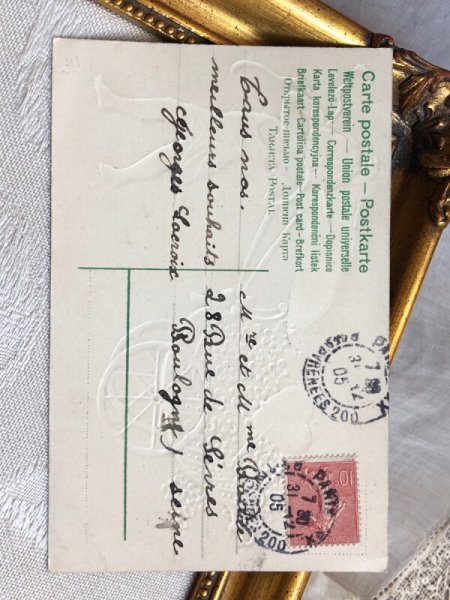 Carte postale — Postkarte
Weltpostverein — Union postale universelle
Levelező-Lap — Correspondenzkarte — Dopisnice
Karta korespondencyjna — Korespondenční lístek
Briefkaart — Cartolina postale — Post card — Brefkort
Открытое письмо — Дописна Карта
TARJETA POSTAL
Tous nos.
meilleurs souhaits
Georges Lacroix
Mre et Mme
28 Rue de Sèvres
Boulogne / Seine
PARIS
7 30
31 12
05
PYRÉNÉES 20D
10
PARIS
7 30
31 12
05
20D